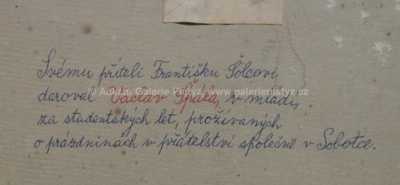 © Adolf Galerie Platýz, www.galerieplatyz.cz
Svému příteli Františku Šolcovi
daroval Václav Špála, v mládí,
za studentských let, prožívaných
o prázdninách v přátelství společně v Sobotce.